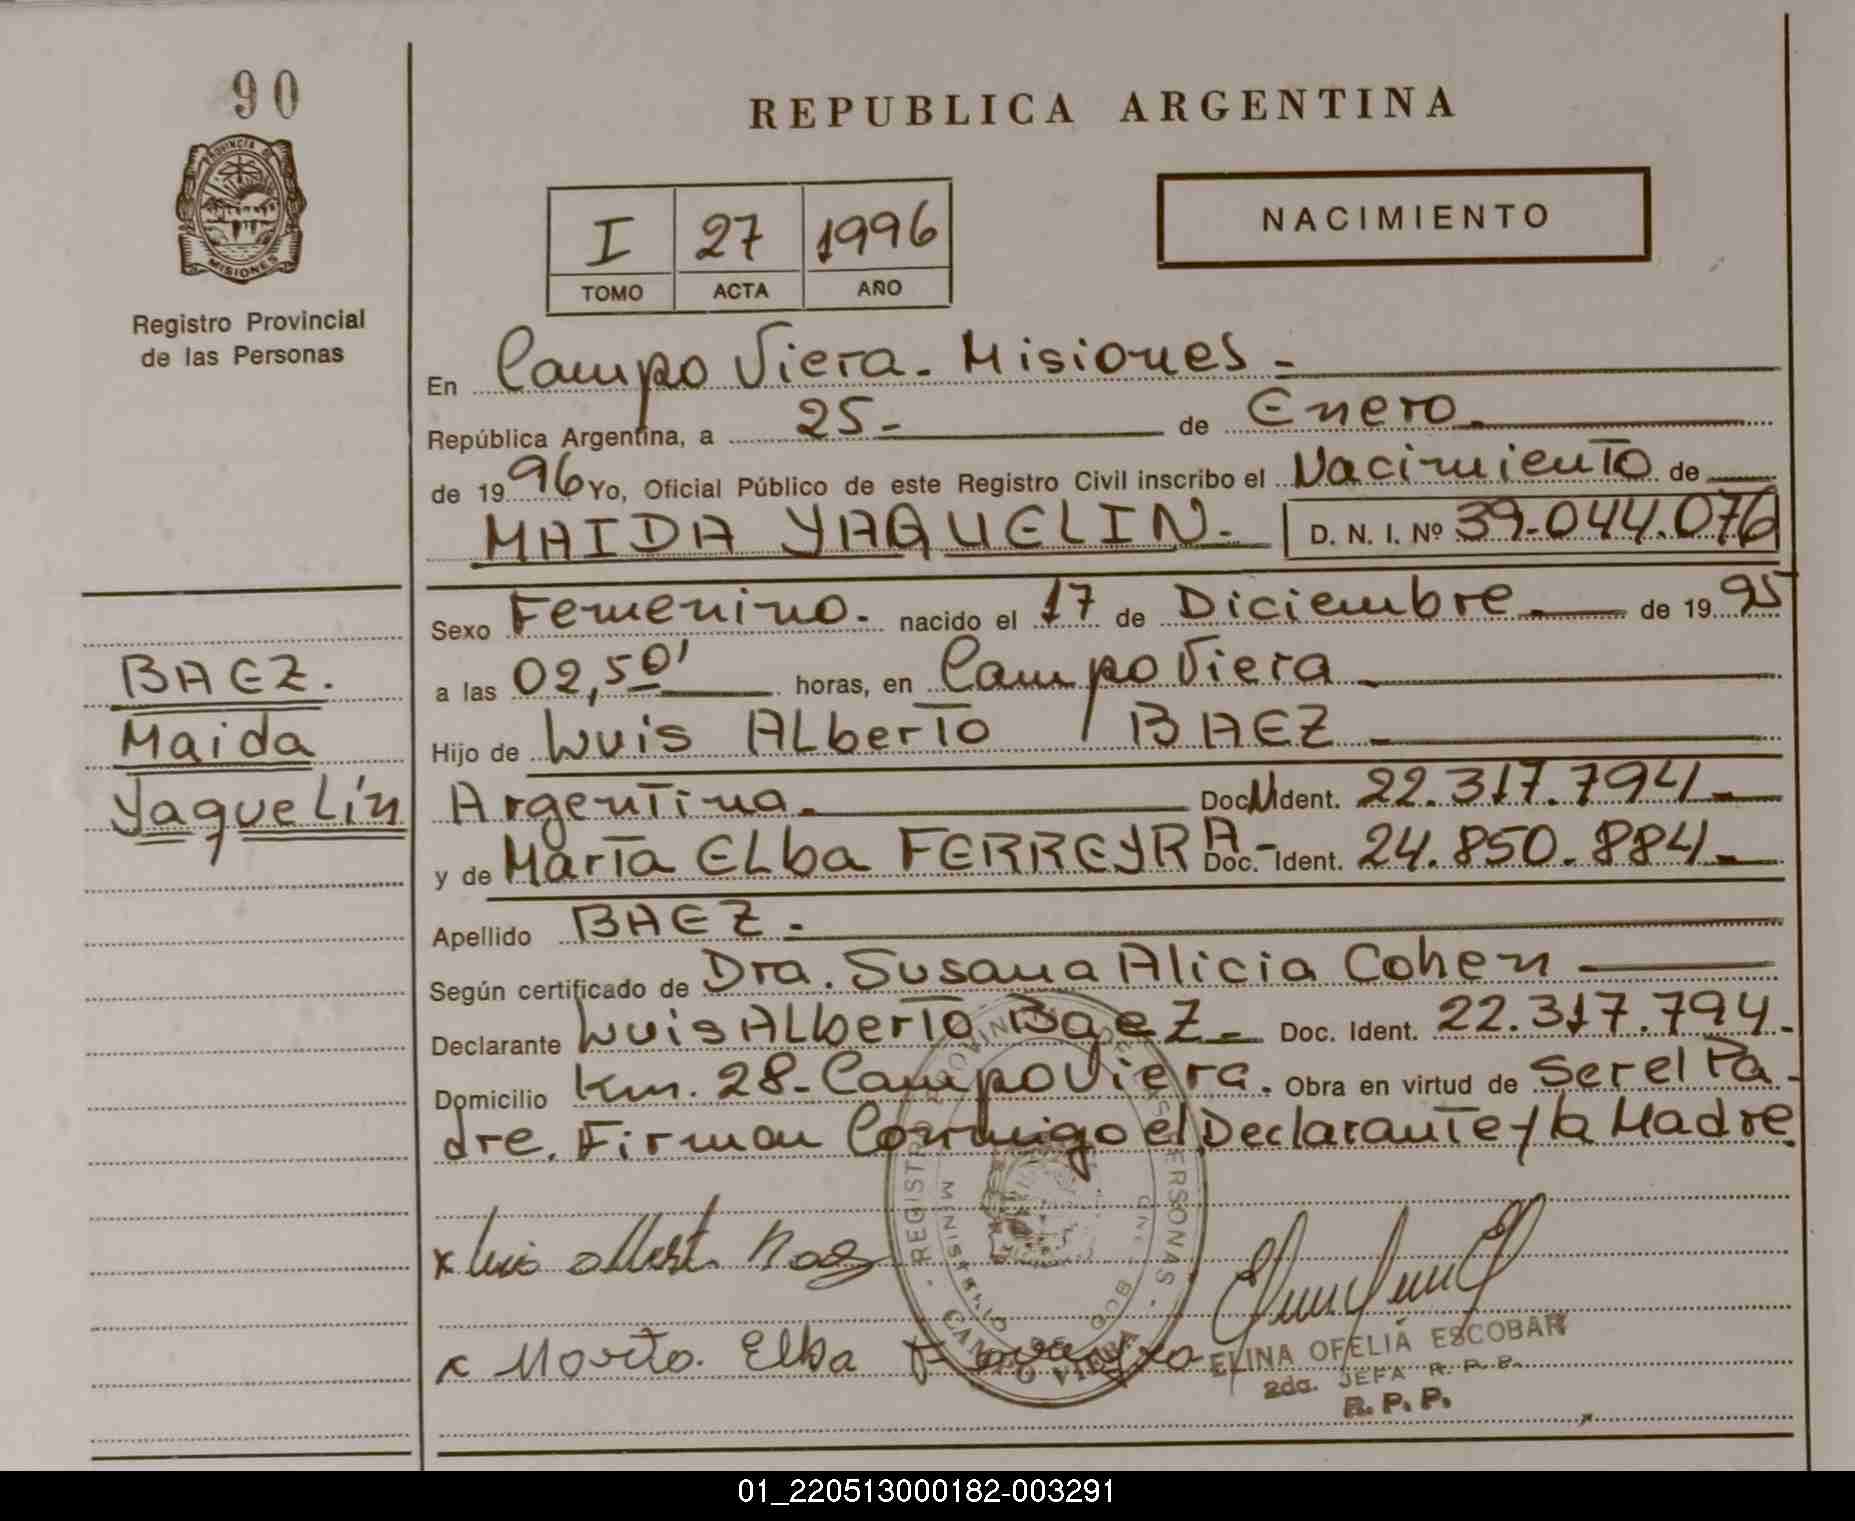 90
PROVINCIA DE
MISIONES
Registro Provincial
de las Personas
BAEZ.
Maida
Yaquelín
REPUBLICA ARGENTINA
I 27 1996
TOMO ACTA AÑO
NACIMIENTO
En Campo Viera. Misiones.-
República Argentina, a 25.- de Enero.
de 1996 Yo, Oficial Público de este Registro Civil inscribo el Nacimiento de
MAIDA YAQUELIN.- D. N. I. Nº 39.044.076
Sexo Femenino. nacido el 17 de Diciembre de 1995
a las 02,50' horas, en Campo Viera
Hijo de Luis ALberto BAEZ
Argentina. Doc. N Ident. 22.317.794
y de María ELba FERREYRA- Doc. Ident. 24.850.884
Apellido BAEZ.-
Según certificado de Dra. Susana Alicia Cohen
Declarante Luis ALberto Baez.- Doc. Ident. 22.317.794.
Domicilio Km. 28-Campo Viera. Obra en virtud de Ser el Pa-
dre. Firman Conmigo el Declarante y la Madre.
x Luis Albert. Baez
x Maria Elba Ferreyra
REGISTRO PROVINCIAL DE LAS PERSONAS
CAMPO VIERA
ELINA OFELIA ESCOBAR
2da. JEFA R. P. P.
R. P. P.
01_220513000182-003291